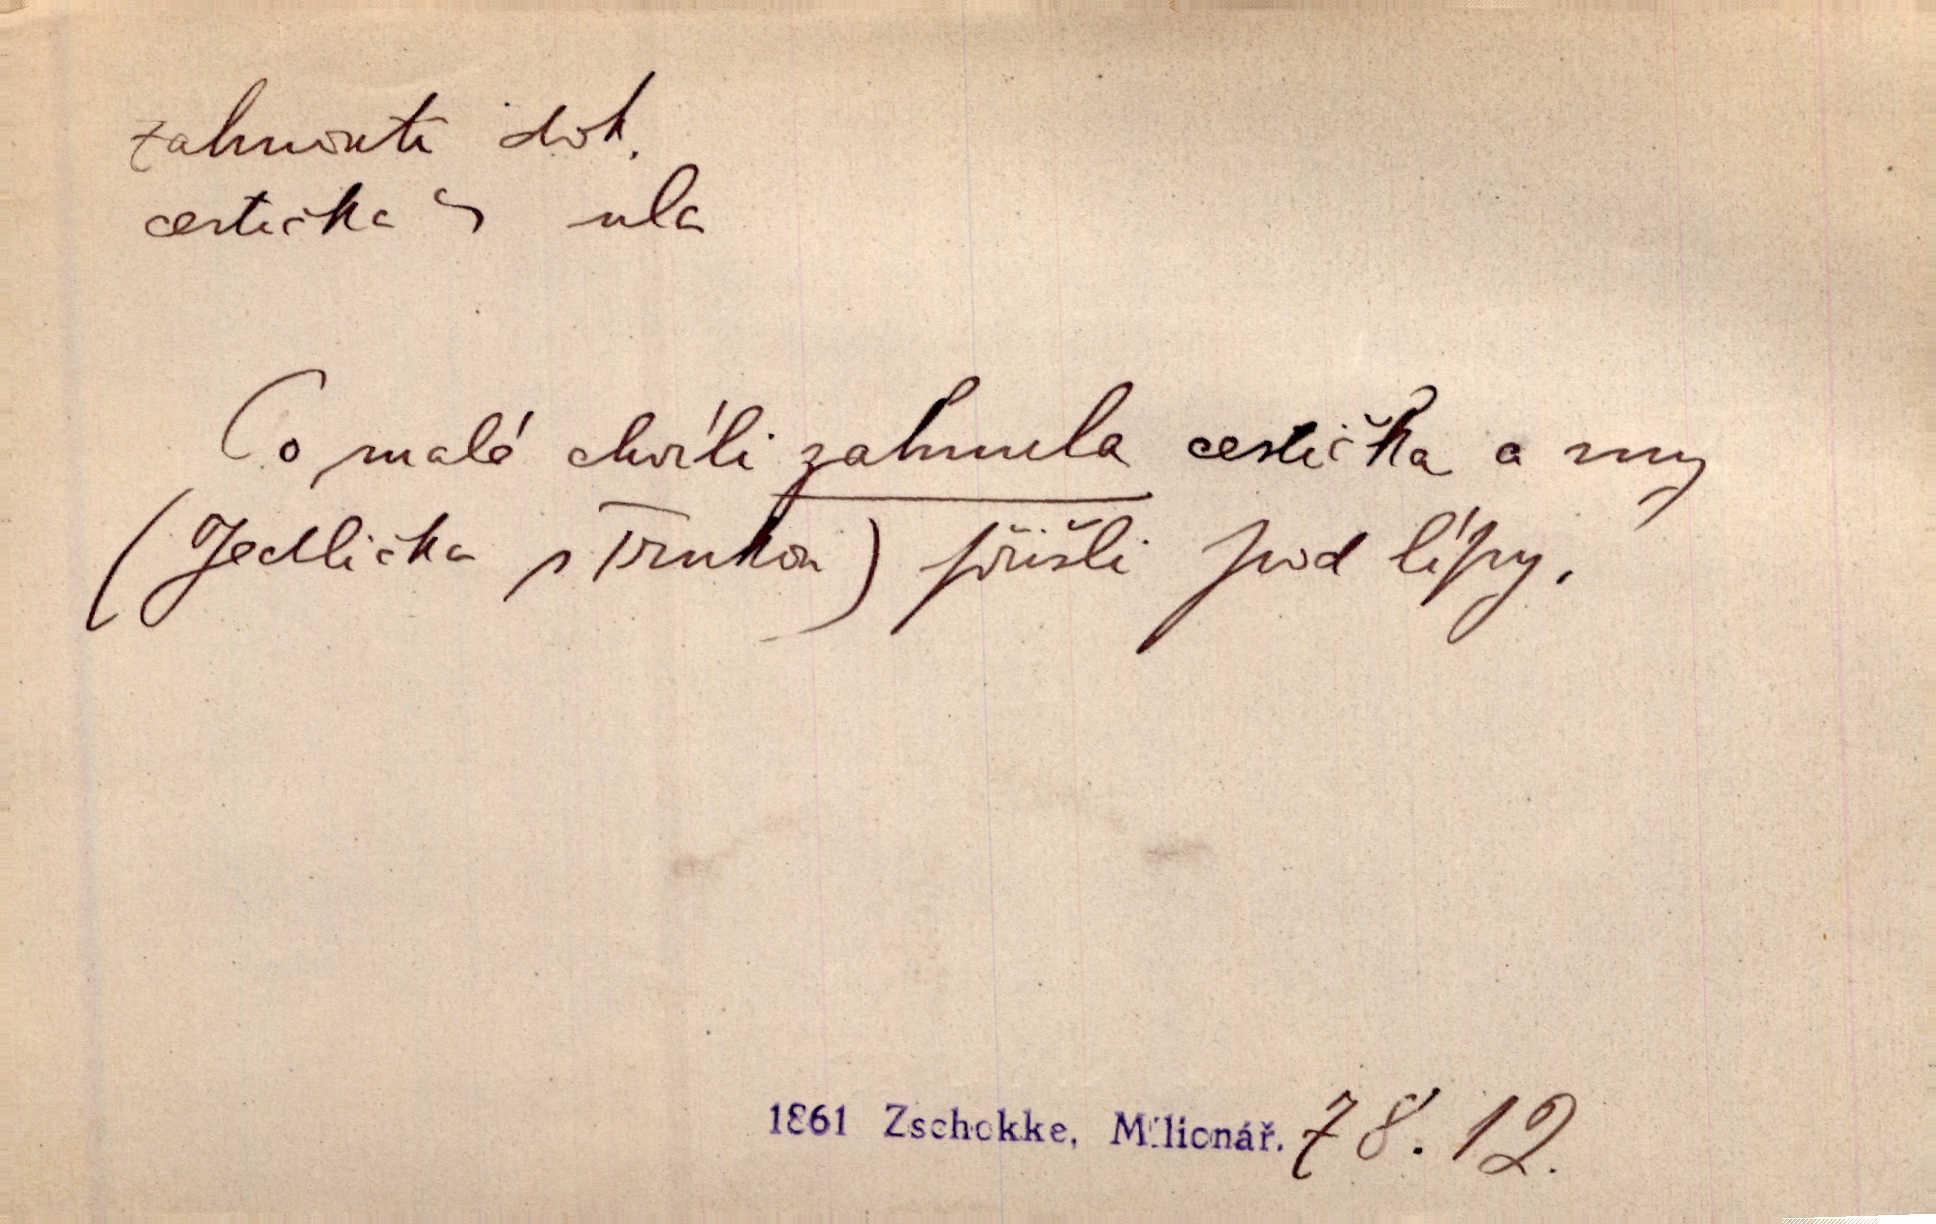 zahnouti dok.
cestička ~ ula
Po malé chvíli zahnula cestička a my
(Jedlička s Trnkou) přišli pod lípy.
1861 Zschokke, Milionář. 78. 12.